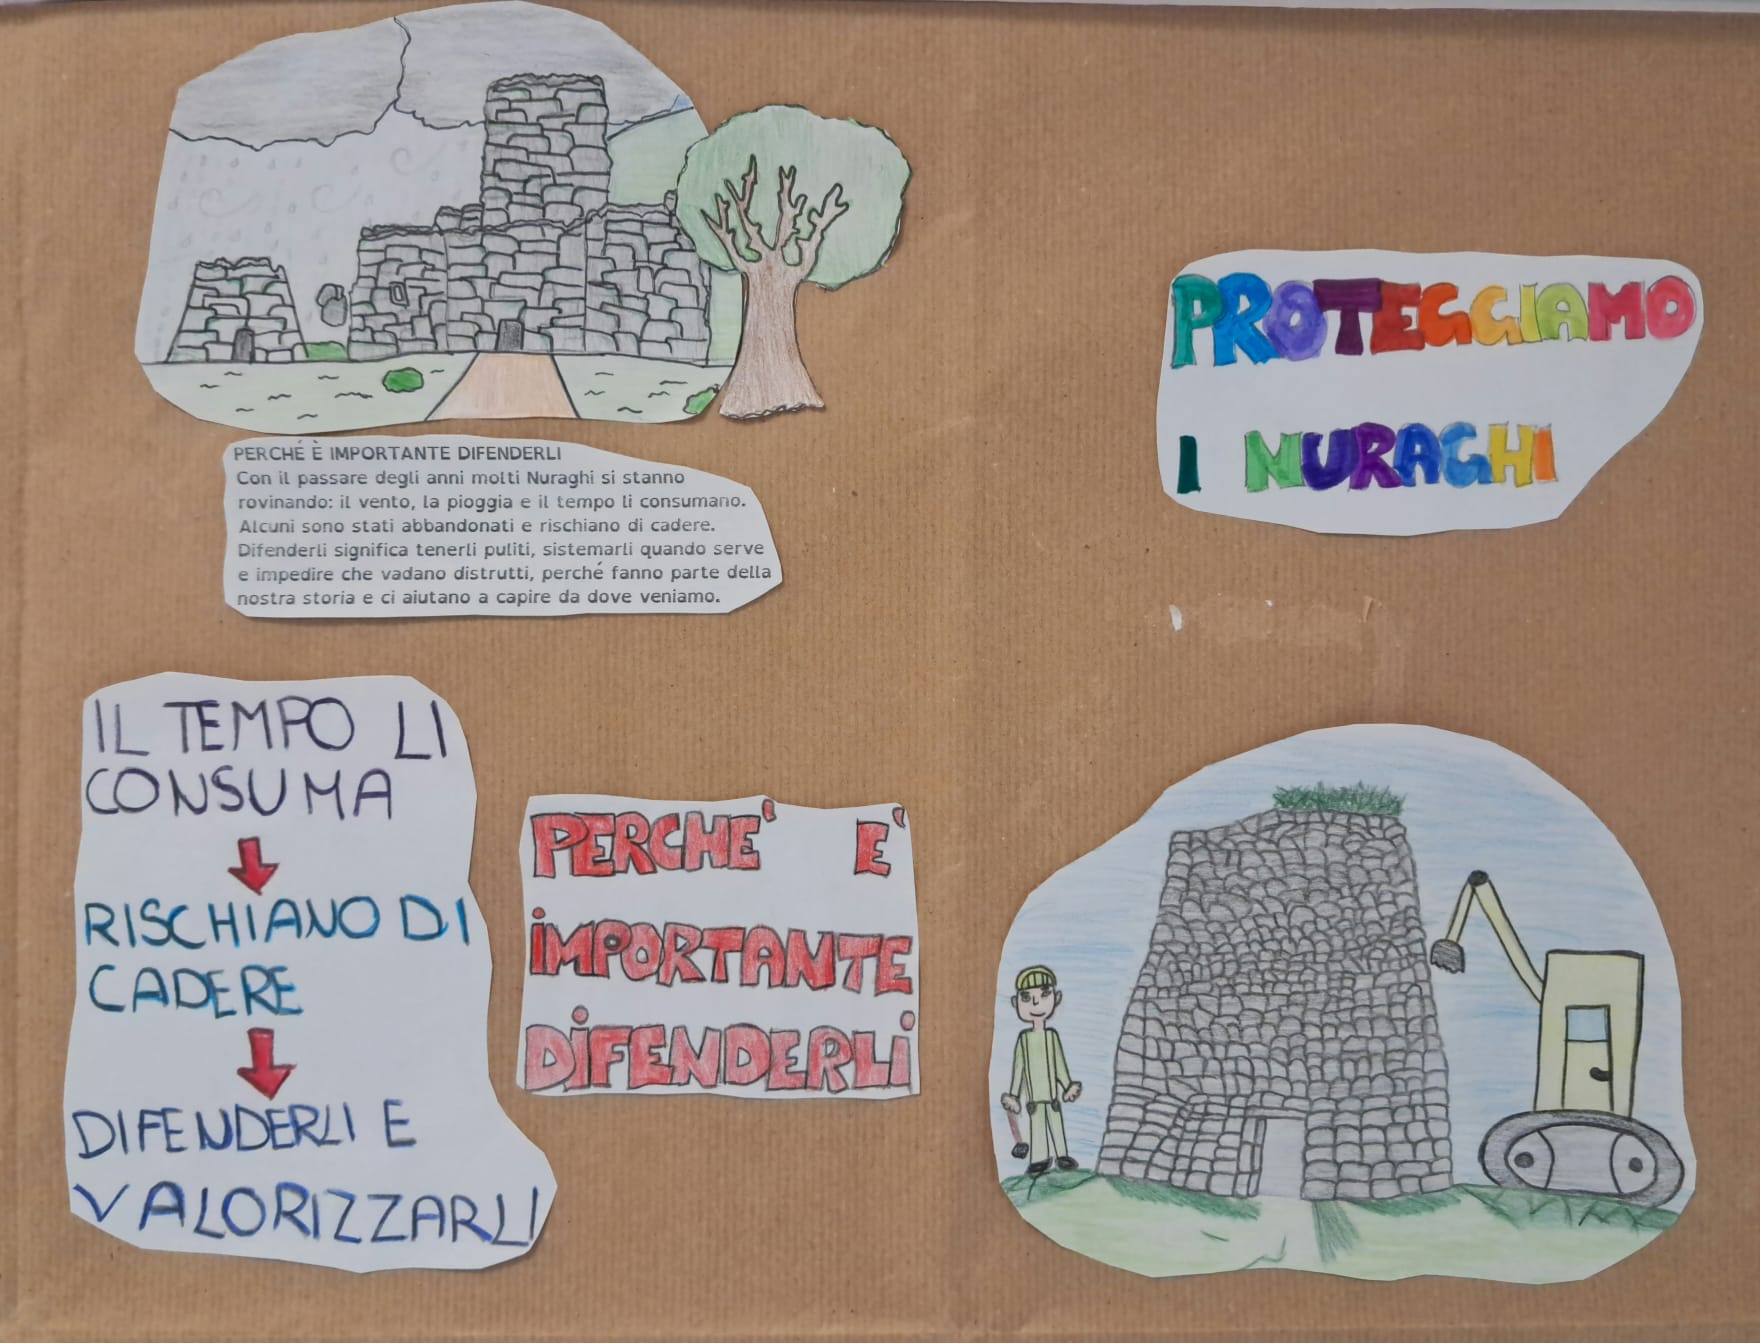 PERCHÉ È IMPORTANTE DIFENDERLI
Con il passare degli anni molti Nuraghi si stanno
rovinando: il vento, la pioggia e il tempo li consumano.
Alcuni sono stati abbandonati e rischiano di cadere.
Difenderli significa tenerli puliti, sistemarli quando serve
e impedire che vadano distrutti, perché fanno parte della
nostra storia e ci aiutano a capire da dove veniamo.
PROTEGGIAMO
I NURAGHI
IL TEMPO LI
CONSUMA
RISCHIANO DI
CADERE
DIFENDERLI E
VALORIZZARLI
PERCHE' E'
IMPORTANTE
DIFENDERLI